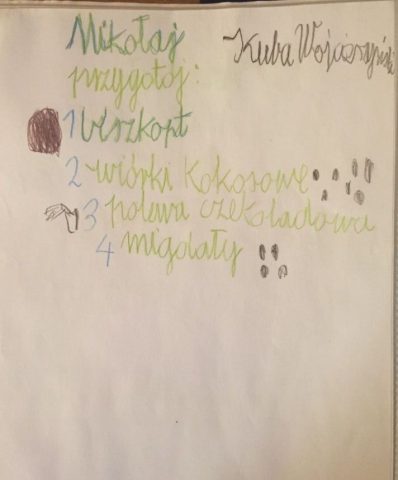 Mikołaj
przygotój:
~Kuba
1 biszkopt
2 wiórki kokosowe
3 polewa czekoladowa
4 migdały